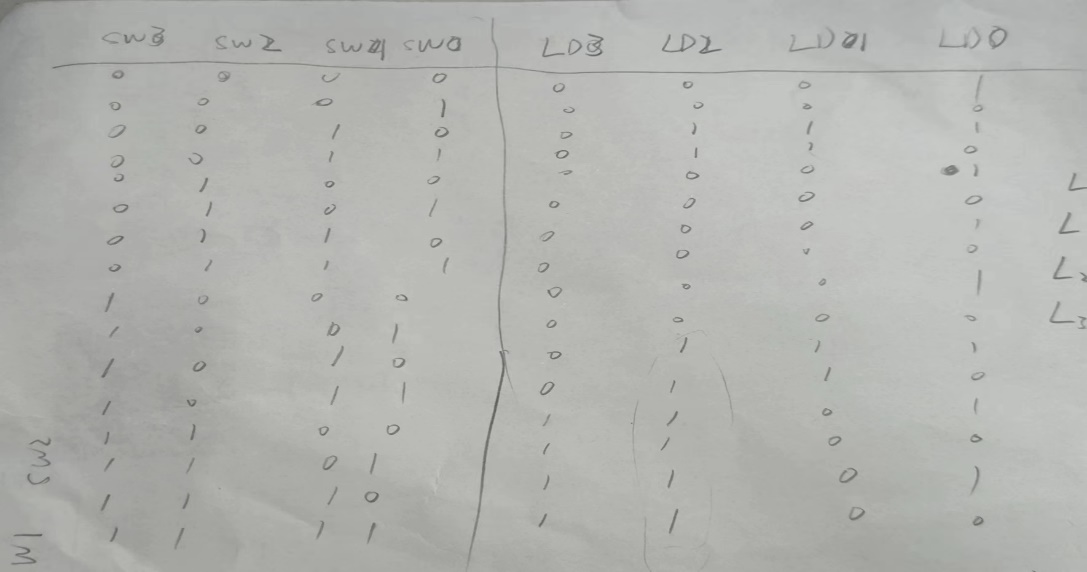 SW3 SW2 SW1 SW0 LD3 LD2 LD1 LD0
0 0 0 0 0 0 0 1
0 0 0 1 0 0 0 0
0 0 1 0 0 1 1 1
0 0 1 1 0 1 1 0
0 1 0 0 0 0 0 1
0 1 0 1 0 0 0 0
0 1 1 0 0 0 0 1
0 1 1 1 0 0 0 0
1 0 0 0 0 0 0 1
1 0 0 1 0 0 0 0
1 0 1 0 0 1 1 1
1 0 1 1 0 1 1 0
1 1 0 0 1 1 0 1
1 1 0 1 1 1 0 0
1 1 1 0 1 1 0 1
1 1 1 1 1 1 0 0
L
L
L2
L3
SW2